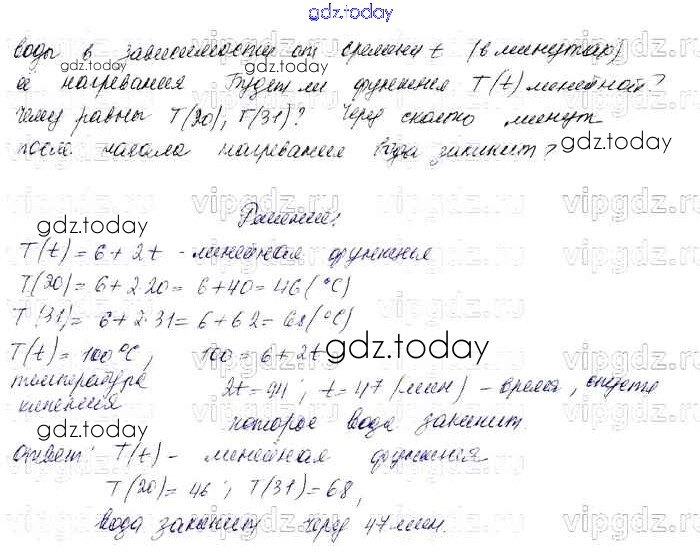 gdz.today
воды в зависимости от времени t (в минутах)
gdz.today
её нагревания Будет ли функция T(t) линейной?
Чему равны T(20), T(31)? Через сколько минут
gdz.today
после начала нагревания вода закипит?
vipgdz.ru vipgdz.ru
Решение:
gdz.today
T(t) = 6 + 2t - линейная функция
T(20) = 6 + 2·20 = 6 + 40 = 46 (°C)
T(31) = 6 + 2·31 = 6 + 62 = 68 (°C)
gdz.today
T(t) = 100°C, 100 = 6 + 2t
температура 2t = 94; t = 47 (мин) - время, спустя
кипения которое вода закипит.
Ответ: T(t) - линейная функция
gdz.today
T(20) = 46; T(31) = 68,
вода закипит через 47 мин.